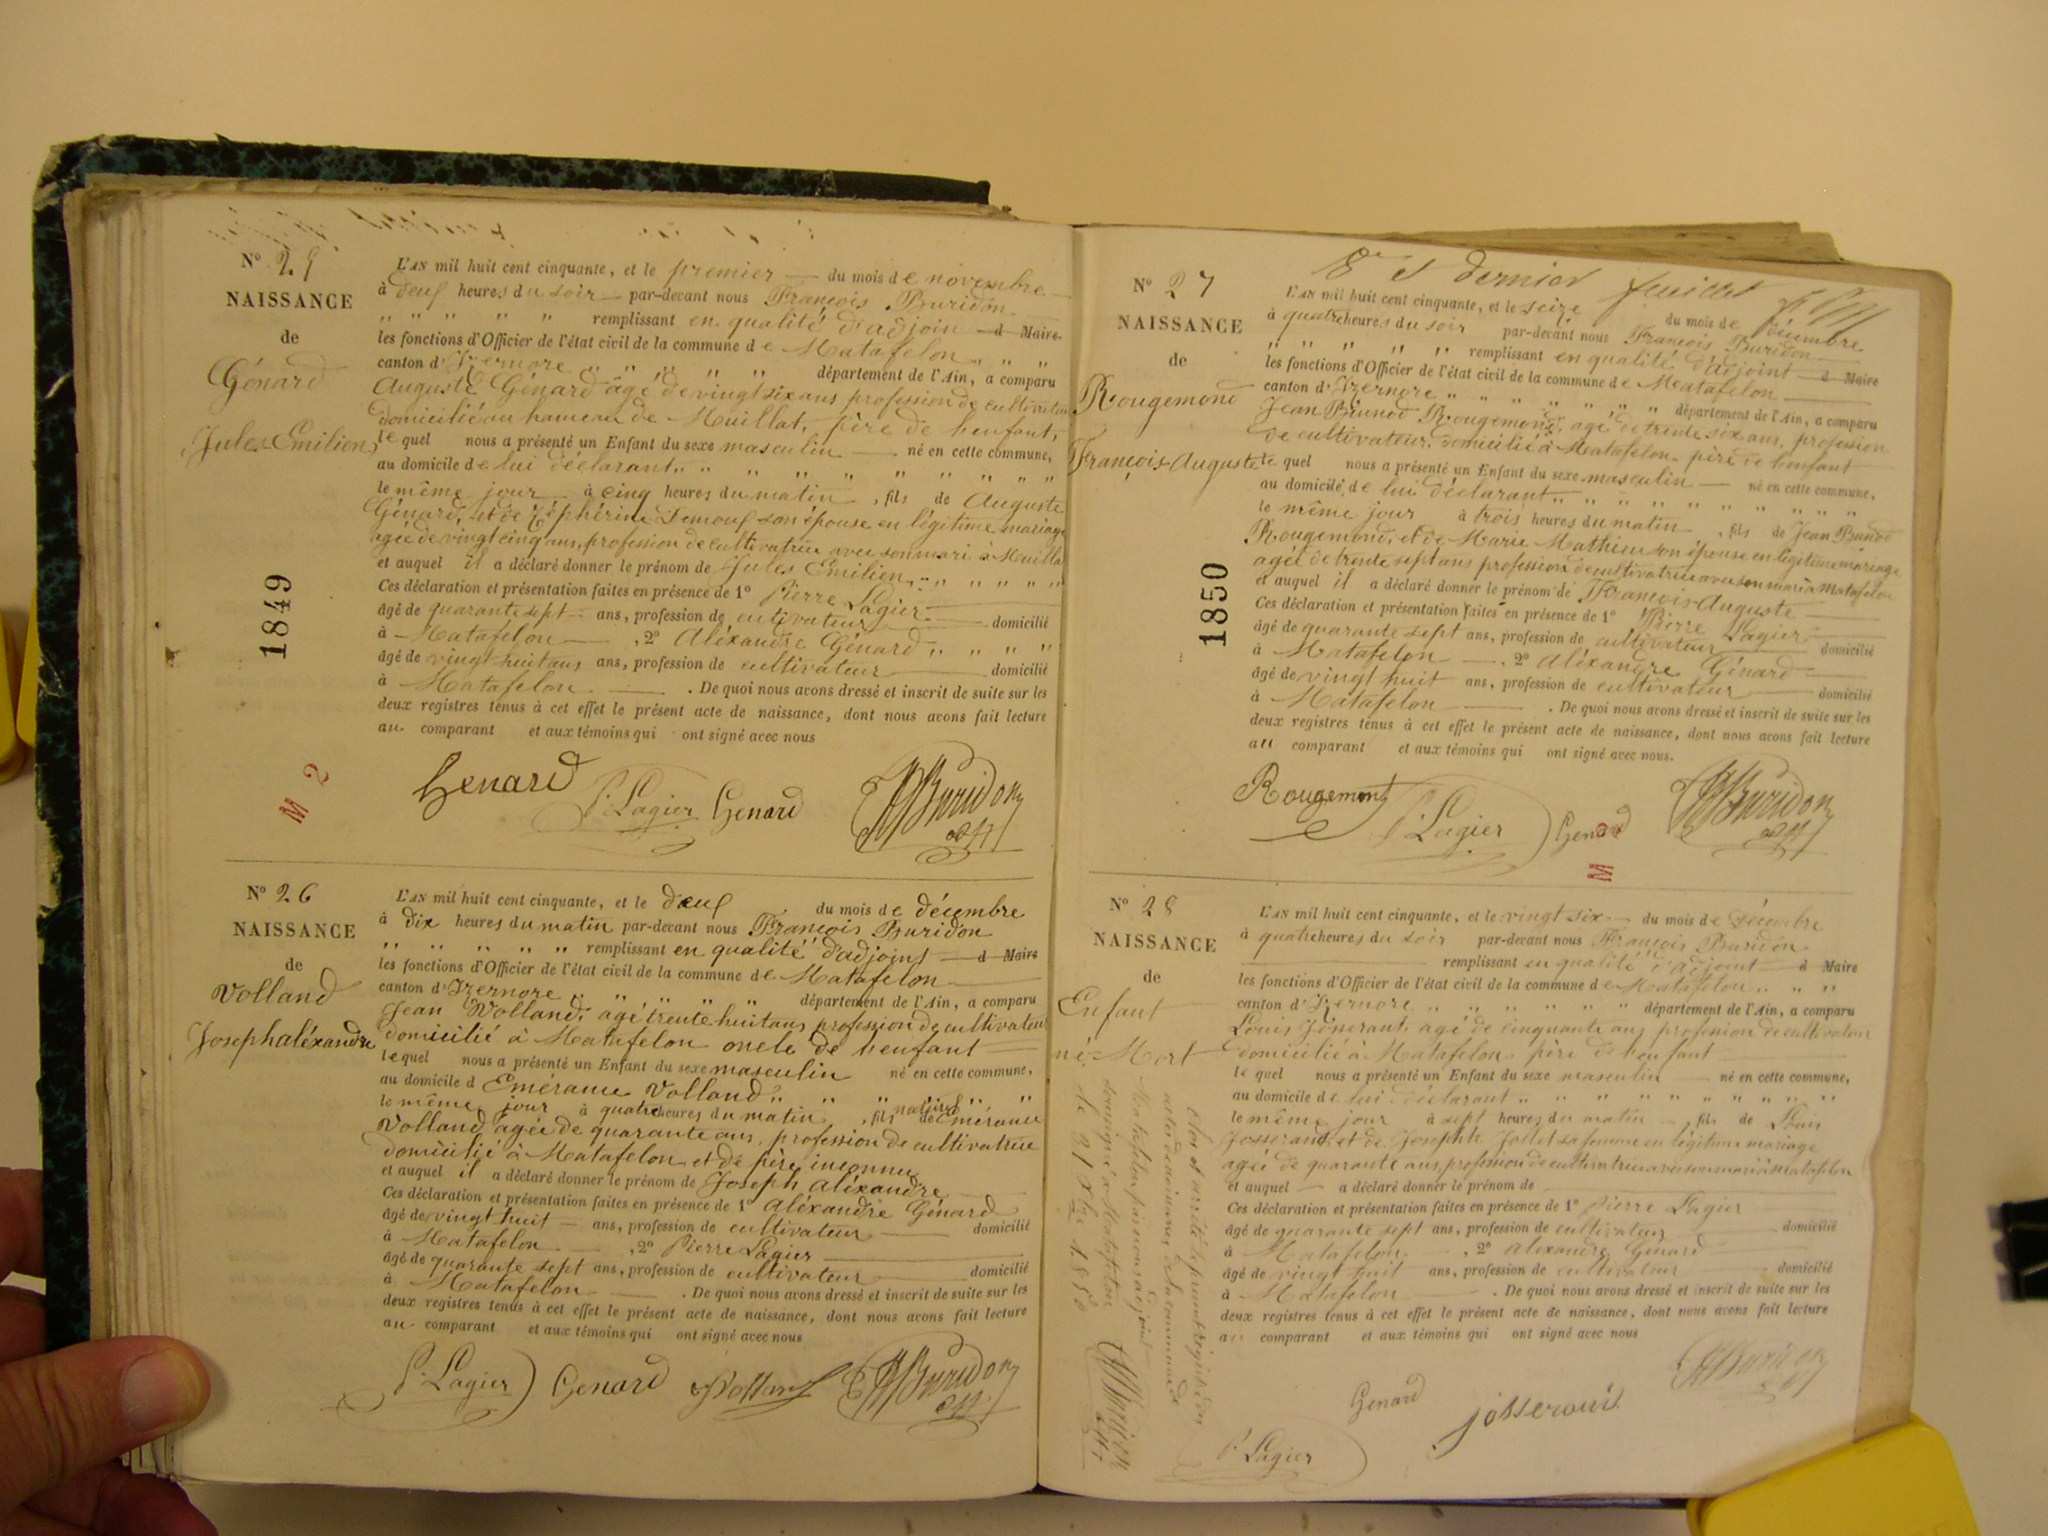 N° 25
NAISSANCE
de
Génard
Jules Emilien
1849
M 2
L'AN mil huit cent cinquante, et le premier du mois de novembre
à deux heures du soir par-devant nous François Buridon
" " " " " remplissant en qualité d'adjoin d Maire
les fonctions d'Officier de l'état civil de la commune de Matafelon " " "
canton d'Izernore " " " " " département de l'Ain, a comparu
Auguste Génard âgé de vingt six ans profession de cultivateur
domicilié au hameau de Heuillat, père de l'enfant,
lequel nous a présenté un Enfant du sexe masculin né en cette commune,
au domicile de lui déclarant " " " " " " " " "
le même jour à cinq heures du matin, fils de Auguste
Génard, et de Zéphérine son épouse en légitime mariage
agée de vingt cinq ans, profession de cultivatrice avec son mari à
et auquel il a déclaré donner le prénom de Jules Emilien " " " " "
Ces déclaration et présentation faites en présence de 1° Pierre Lagier
âgé de quarante sept ans, profession de cultivateur domicilié
à Matafelon, 2° Aléxandre Génard " " " "
âgé de vingt huit ans ans, profession de cultivateur domicilié
à Matafelon. De quoi nous avons dressé et inscrit de suite sur les
deux registres tenus à cet effet le présent acte de naissance, dont nous avons fait lecture
au comparant et aux témoins qui ont signé avec nous
Genard P. Lagier Genard Buridon adjt
N° 26
NAISSANCE
de
Volland
Joseph aléxandre
L'AN mil huit cent cinquante, et le deux du mois de décembre
à dix heures du matin par-devant nous François Buridon
" " " " " remplissant en qualité d'adjoint d Maire
les fonctions d'Officier de l'état civil de la commune de Matafelon
canton d'Izernore " " " " département de l'Ain, a comparu
Jean Volland, agé trente huit ans profession de cultivateur
domicilié à Matafelon oncle de l'enfant
lequel nous a présenté un Enfant du sexe masculin né en cette commune,
au domicile d Emérance Volland " " " " " "
le même jour à quatre heures du matin, fils naturel de Emérance
Volland agée de quarante ans, profession de cultivatrice
domicilié à Matafelon et de père inconnu
et auquel il a déclaré donner le prénom de Joseph Aléxandre
Ces déclaration et présentation faites en présence de 1° Aléxandre Génard
âgé de vingt huit ans, profession de cultivateur domicilié
à Matafelon, 2° Pierre Lagier
âgé de quarante sept ans, profession de cultivateur domicilié
à Matafelon. De quoi nous avons dressé et inscrit de suite sur les
deux registres tenus à cet effet le présent acte de naissance, dont nous avons fait lecture
au comparant et aux témoins qui ont signé avec nous
P. Lagier Genard Volland Buridon adjt
8e et dernier feuillet
N° 27
NAISSANCE
de
Rougemond
François Auguste
1850
M 2
L'AN mil huit cent cinquante, et le seize du mois de décembre
à quatre heures du soir par-devant nous François Buridon
" " " " " remplissant en qualité d'adjoint d Maire
les fonctions d'Officier de l'état civil de la commune de Matafelon
canton d'Izernore " " " " " " département de l'Ain, a comparu
Jean Brunod Rougemond, agé de trente six ans, profession
de cultivateur, domicilié à Matafelon père de l'enfant
lequel nous a présenté un Enfant du sexe masculin né en cette commune,
au domicile de lui déclarant " " " " " " " " "
le même jour à trois heures du matin, fils de Jean Brunod
Rougemond, et de Marie Mathieu son épouse en légitime mariage
agée de trente sept ans profession de cultivatrice avec son mari à Matafelon
et auquel il a déclaré donner le prénom de François Auguste
Ces déclaration et présentation faites en présence de 1° Pierre Lagier
âgé de quarante sept ans, profession de cultivateur domicilié
à Matafelon, 2° Aléxandre Génard
âgé de vingt huit ans, profession de cultivateur domicilié
à Matafelon. De quoi nous avons dressé et inscrit de suite sur les
deux registres tenus à cet effet le présent acte de naissance, dont nous avons fait lecture
au comparant et aux témoins qui ont signé avec nous.
Rougemont P. Lagier Genard Buridon adjt
N° 28
NAISSANCE
de
Enfant
né Mort
L'AN mil huit cent cinquante, et le vingt six du mois de décembre
à quatre heures du soir par-devant nous François Buridon
remplissant en qualité d'adjoint d Maire
les fonctions d'Officier de l'état civil de la commune de Matafelon " " "
canton d'Izernore " " " " " " département de l'Ain, a comparu
Louis agé de cinquante ans profession de cultivateur
domicilié à Matafelon père de l'enfant
lequel nous a présenté un Enfant du sexe masculin né en cette commune,
au domicile de lui déclarant " " " " " " " " "
le même jour à sept heures du matin, fils de Louis
Josserand, et de Josephte Jollet sa femme en légitime mariage
agée de quarante ans, profession de cultivatrice avec son mari à Matafelon
et auquel a déclaré donner le prénom de
Ces déclaration et présentation faites en présence de 1° Pierre Lagier
âgé de quarante sept ans, profession de cultivateur domicilié
à Matafelon, 2° Alexandre Génard
âgé de vingt huit ans, profession de cultivateur domicilié
à Matafelon. De quoi nous avons dressé et inscrit de suite sur les
deux registres tenus à cet effet le présent acte de naissance, dont nous avons fait lecture
au comparant et aux témoins qui ont signé avec nous
Genard Josserand Buridon adjt
P. Lagier
Clos et arrêté le présent registre des
actes de naissance de la commune de
Matafelon par nous adjoint
soussigné à Matafelon
le 31 Xbre 1850
Buridon adjt